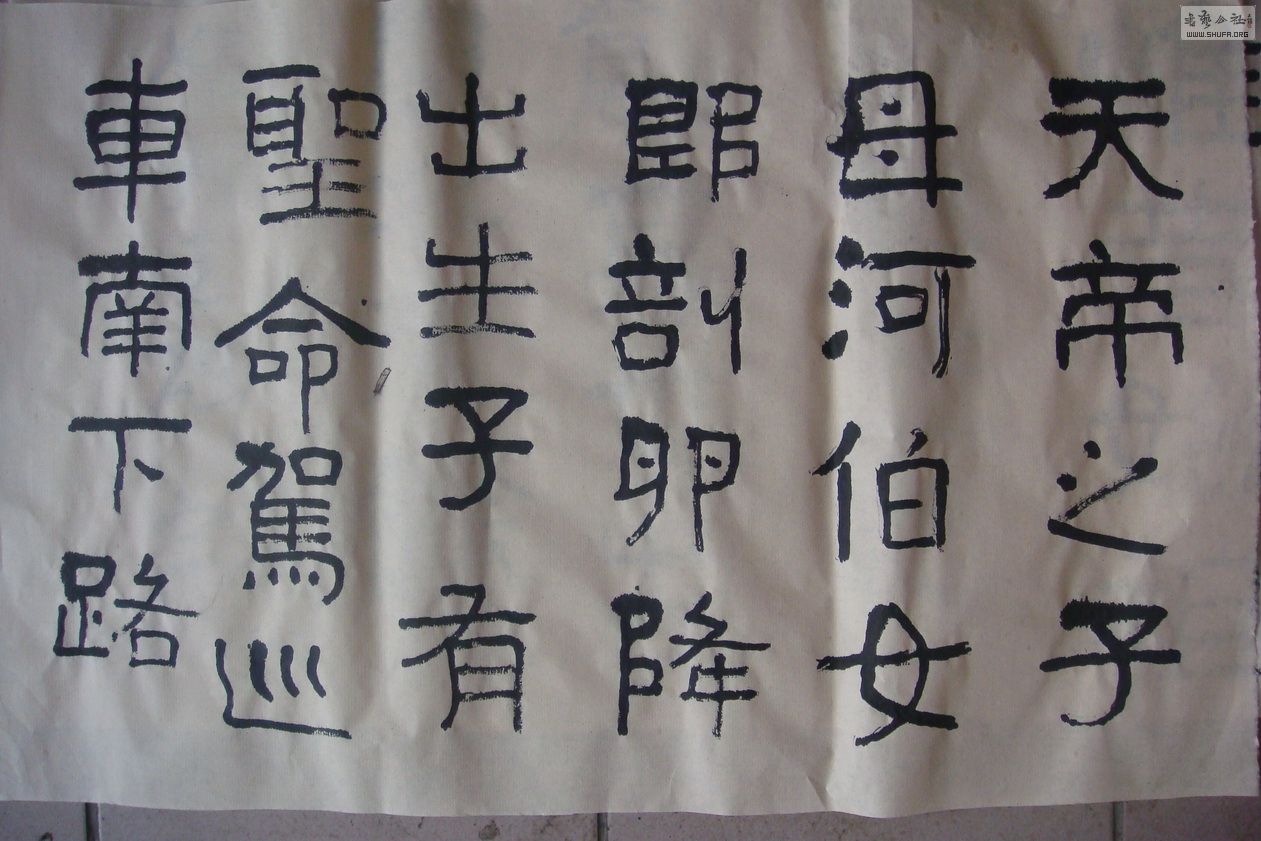 天帝之子
母河伯女
郎剖卵降
出生子有
聖命駕巡
車南下路
書藝公社
WWW.SHUFA.ORG